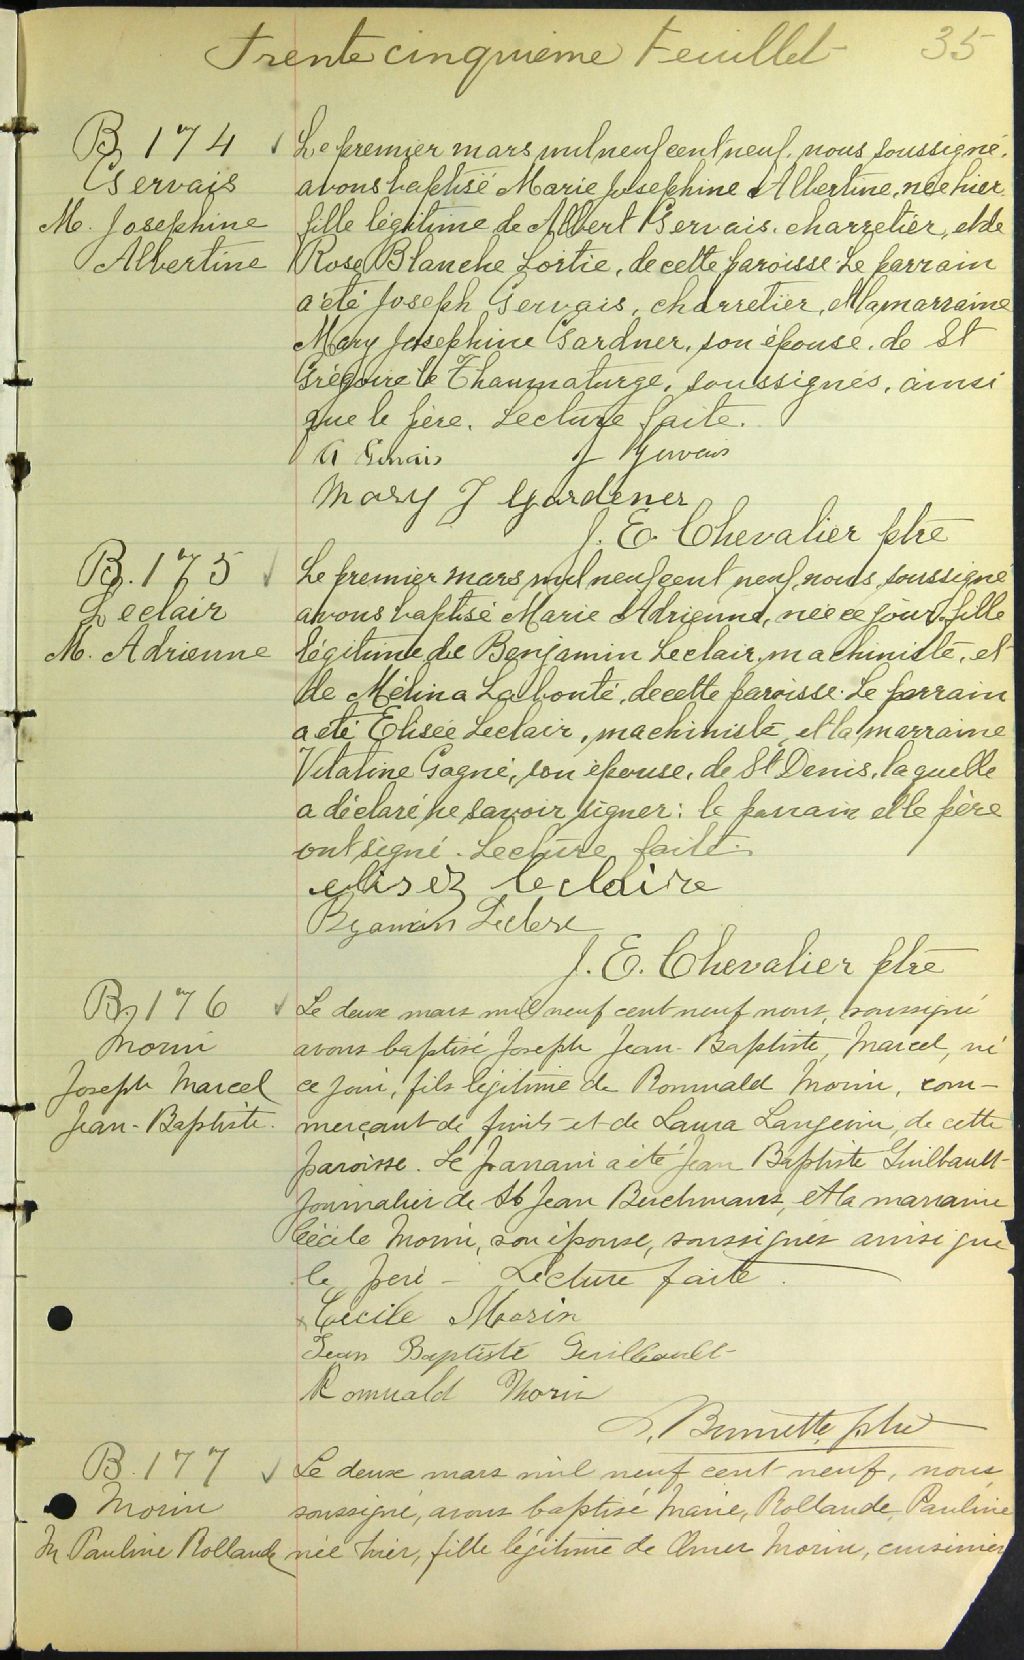 Trente cinquième Feuillet 35
B 174
Gervais
M. Josephine
Albertine
Le premier mars mil neuf cent neuf, nous soussigné,
avons baptisé Marie Josephine Albertine, née hier
fille légitime de Albert Gervais, charretier, et de
Rose Blanche Lortie, de cette paroisse. Le parrain
a été Joseph Gervais, charretier, et la marraine
Mary Josephine Gardner, son épouse, de St
Grégoire le Thaumaturge, soussignés, ainsi
que le père. Lecture faite.
A Gervais J Gervais
Mary J Gardener
J. E. Chevalier ptre
B. 175
Leclair
M. Adrienne
Le premier mars mil neuf cent neuf, nous, soussigné
avons baptisé Marie Adrienne, née ce jour, fille
légitime de Benjamin Leclair, machiniste, et
de Mélina Labonté, de cette paroisse. Le parrain
a été Elisée Leclair, machiniste, et la marraine
Vitaline Gagné, son épouse, de St Denis, laquelle
a déclaré ne savoir signer: le parrain et le père
ont signé. Lecture faite.
elisez leclaire
J. E. Chevalier ptre
B. 176
Morin
Joseph Marcel
Jean-Baptiste.
Le deux mars mil neuf cent neuf nous, soussigné
avons baptisé Joseph Jean-Baptiste, Marcel, né
ce jour, fils légitime de Romuald Morin, com-
merçant de fruits et de Laura Langevin, de cette
paroisse. Le parrain a été Jean Baptiste Guilbault
journalier de St Jean Berchmans, et la marraine
Cécile Morin, son épouse, soussignés ainsi que
le père - Lecture faite.
Cecile Morin
Jean Baptiste Guilbault
Romuald Morin
ptre
B. 177
Morin
M Pauline Rollande
Le deux mars mil neuf cent neuf, nous
soussigné, avons baptisé Marie, Rollande, Pauline
née hier, fille légitime de Omer Morin, cuisinier